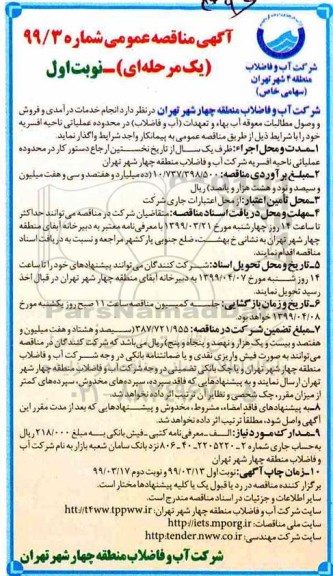 آگهی مناقصه عمومی شماره ۹۹/۳
(یک مرحله‌ای) – نوبت اول
شرکت آب و فاضلاب
منطقه ۴ شهر تهران
(سهامی خاص)
شرکت آب و فاضلاب منطقه چهار شهر تهران در نظر دارد انجام خدمات درآمدی و فروش
و وصول مطالبات معوقه آب بهاء و تعهدات (آب و فاضلاب) در محدوده عملیاتی ناحیه افسریه
خود را با شرایط ذیل از طریق مناقصه عمومی به پیمانکار واجد شرایط واگذار نماید.
۱- مدت و محل اجراء: ظرف یک سال از تاریخ نخستین ارجاع دستور کار در محدوده
عملیاتی ناحیه افسریه شرکت آب و فاضلاب منطقه چهار شهر تهران
۲- مبلغ برآوردی مناقصه: ۱۰/۷۳۷/۳۹۸/۵۰۰ (ده میلیارد و هفتصد و سی و هفت میلیون
و سیصد و نود و هشت هزار و پانصد) ریال
۳- محل تأمین اعتبار: از محل اعتبارات جاری شرکت
۴- مهلت و محل دریافت اسناد مناقصه: متقاضیان شرکت در مناقصه می‌توانند حداکثر
تا ساعت ۱۴ روز چهارشنبه مورخ ۱۳۹۹/۰۳/۲۱ با معرفی‌نامه معتبر به دبیرخانه آبفای منطقه
چهار شهر تهران به نشانی خ بهشت، ضلع جنوبی پارکشهر مراجعه و نسبت به دریافت اسناد
مناقصه اقدام نمایند.
۵- تاریخ و محل تحویل اسناد: شرکت کنندگان می‌توانند پیشنهادهای خود را تا ساعت
۱۴ روز شنبه مورخ ۱۳۹۹/۰۴/۰۷ به دبیرخانه آبفای منطقه چهار شهر تهران در قبال اخذ
رسید تحویل نمایند.
۶- تاریخ و زمان بازگشایی: جلسه کمیسیون مناقصه ساعت ۱۱ صبح روز یکشنبه مورخ
۱۳۹۹/۰۴/۰۸ خواهد بود.
۷- مبلغ تضمین شرکت در مناقصه: ۳۸۷/۷۲۱/۹۵۵ (سیصد و هشتاد و هفت میلیون و
هفتصد و بیست و یک هزار و نهصد و پنجاه و پنج) ریال می‌باشد که شرکت کنندگان در مناقصه
می‌توانند به صورت فیش واریزی نقدی و یا ضمانتنامه بانکی در وجه شرکت آب و فاضلاب
منطقه چهار شهر تهران و یا چک بانکی تضمینی در وجه شرکت آب و فاضلاب منطقه چهار شهر
تهران ارسال نمایند و به پیشنهادهایی که فاقد سپرده، سپرده‌های مخدوش، سپرده‌های کمتر
از میزان مقرر، چک شخصی و نظایر آن ترتیب اثر داده نخواهد شد.
۸- به پیشنهادهای فاقد امضاء، مشروط، مخدوش و پیشنهادهایی که بعد از مدت مقرر این
آگهی واصل شود، مطلقاً ترتیب اثر داده نخواهد شد.
۹- مدارک مورد نیاز: الف- معرفی‌نامه کتبی- فیش بانکی به مبلغ ۲۱۸/۰۰۰ ریال
به حساب جاری شماره ۲-۲۲۰۵۲۲۰-۴۰-۸۰۶ نزد بانک سامان شعبه بازار به نام شرکت آب
و فاضلاب منطقه چهار شهر تهران
۱۰- زمان چاپ آگهی: نوبت اول ۹۹/۰۳/۱۳ و نوبت دوم ۹۹/۰۳/۱۷
برگزار کننده مناقصه در رد یا قبول یک یا کلیه پیشنهادها مختار است.
سایر اطلاعات و جزئیات در اسناد مناقصه مندرج است.
سایت شرکت آب و فاضلاب منطقه چهار شهر تهران: htt://t4ww.tppww.ir
سایت ملی مناقصات: http://iets.mporg.ir
سایت شرکت مهندسی: http:tender.nww.co.ir
شرکت آب و فاضلاب منطقه چهار شهر تهران